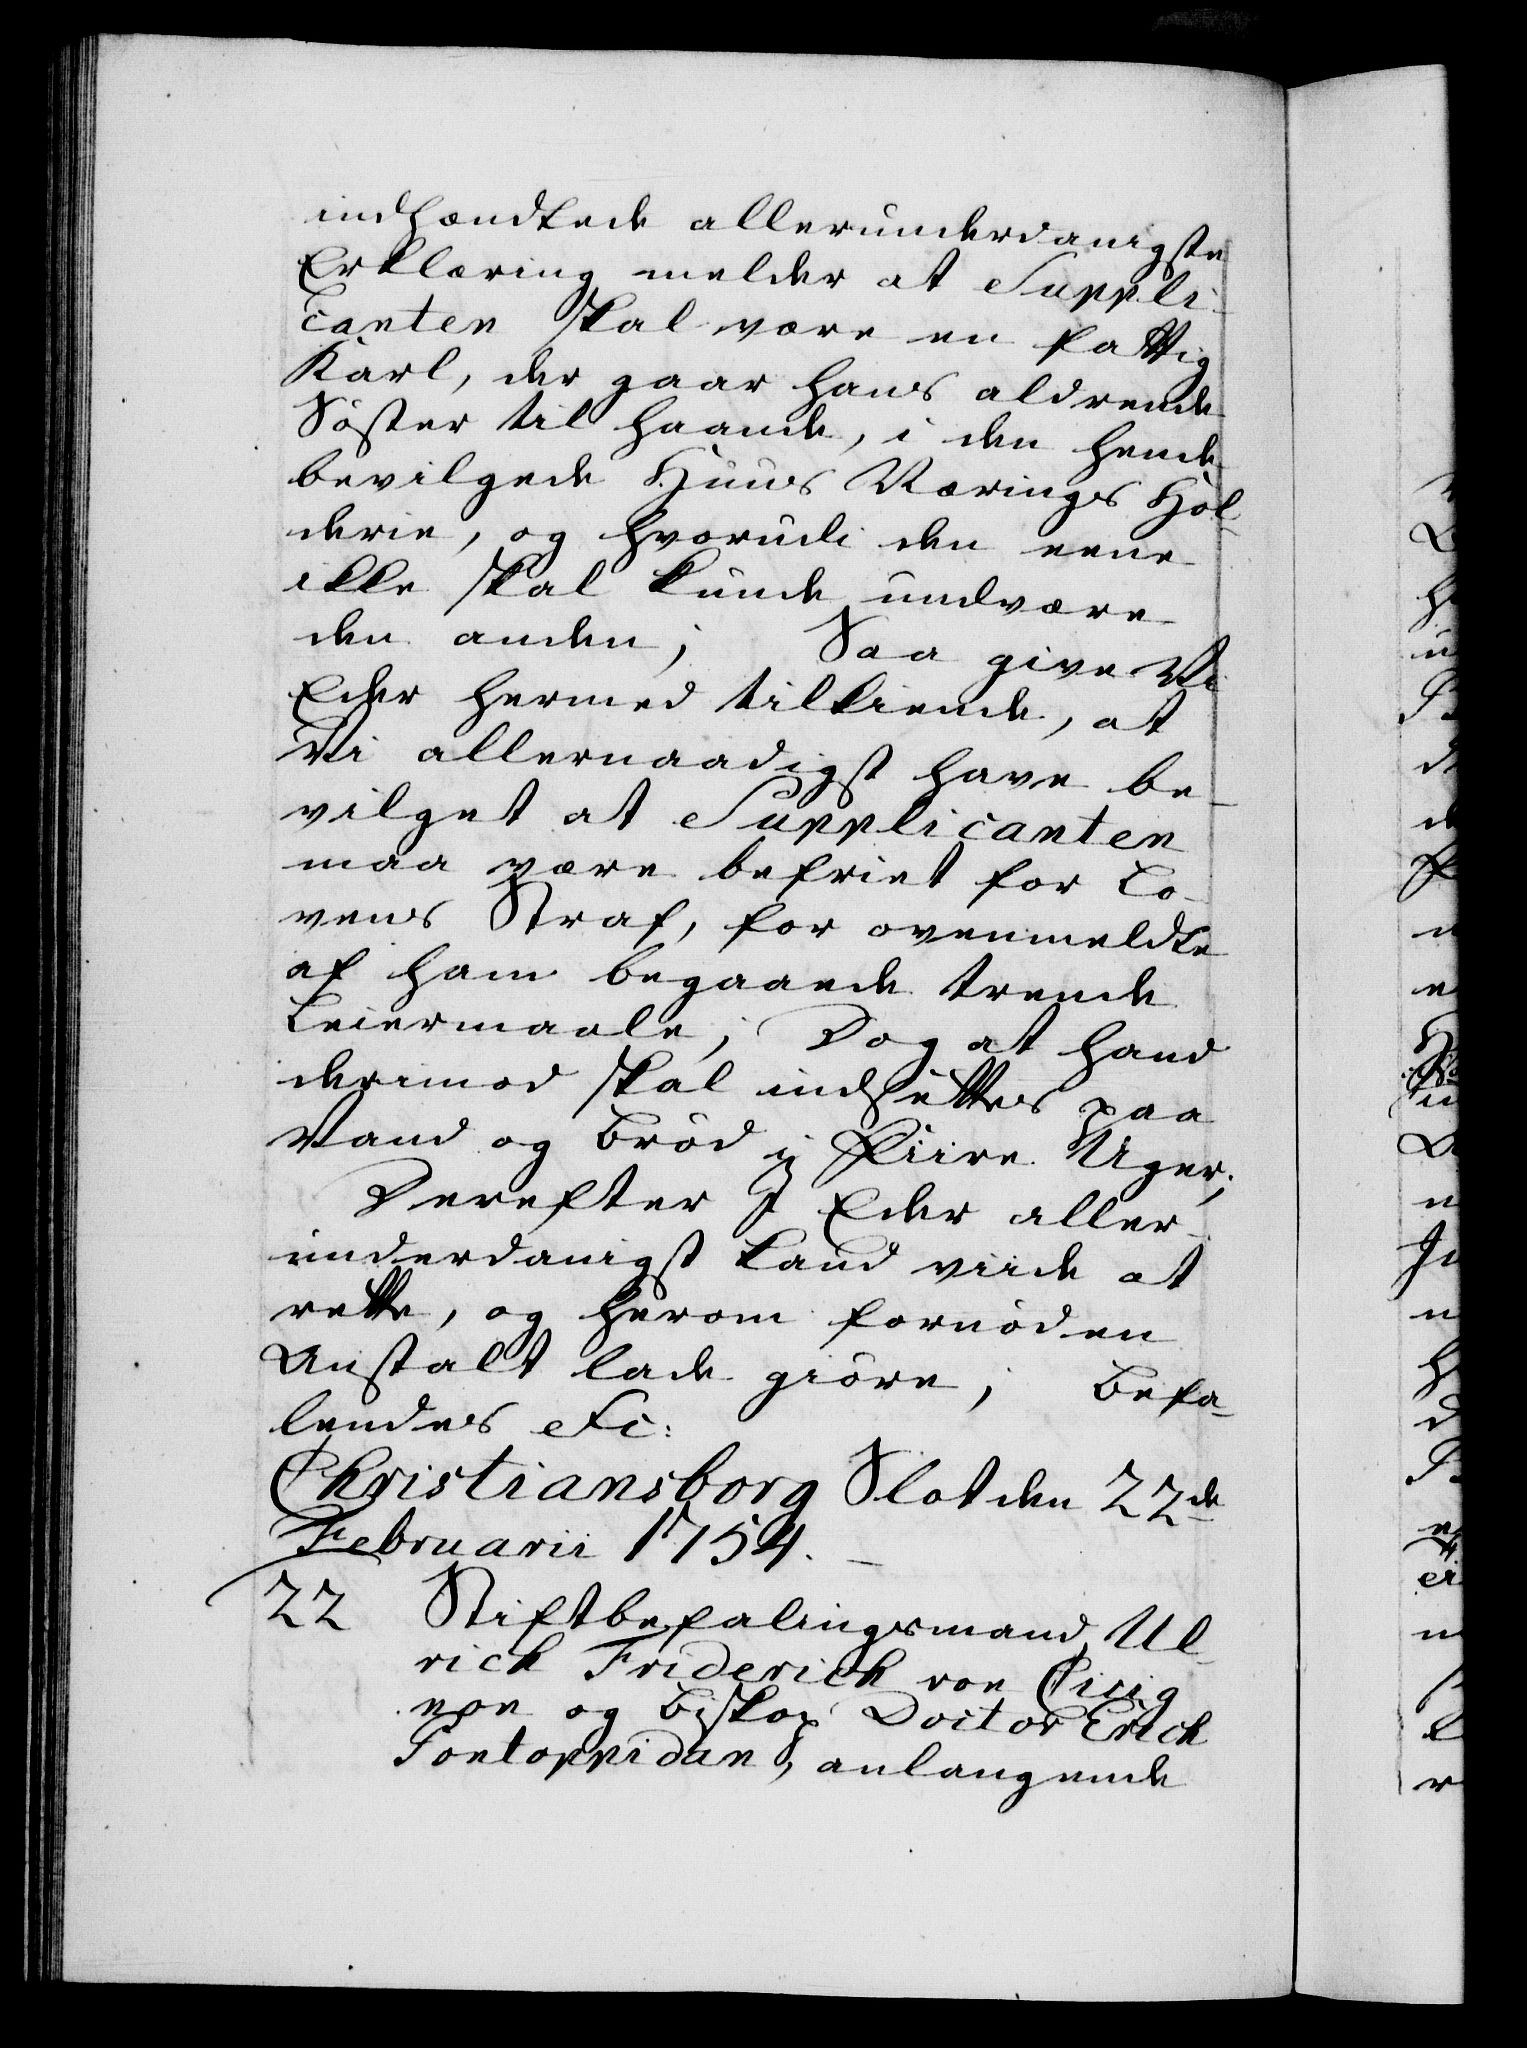 indhændkede allerunderdanigste
Erklæring melder at Suppli-
canten skal være en fattig
Karl, der gaar hans aldrende
Søster til haande, i den hende
bevilgede Huus Værings Høl-
derie, og hvorudi den eene
ikke skal kunde undvære
den anden; Saa give Vi
Eder hermed tilkiende, at
Vi allernaadigst have be-
vilget at Supplicanten
maa være befriet for Lo-
vens Straf, for ovenmeldte
af ham begaaede trende
Leiermaale; Dog at hand
derimod skal indsættes paa
Vand og Brød i fiire Uger;
Derefter I Eder aller-
underdanigst kand viide at
rette, og herom fornøden
Anstalt lade giøre; Befa-
lendes etc:
Christiansborg Slot den 22de
Februarii 1754.
22 Stiftbefalingsmand Ul-
rich Friderich von Cicig-
non og Biskop Doctor Erich
Pontoppidan, anlangende